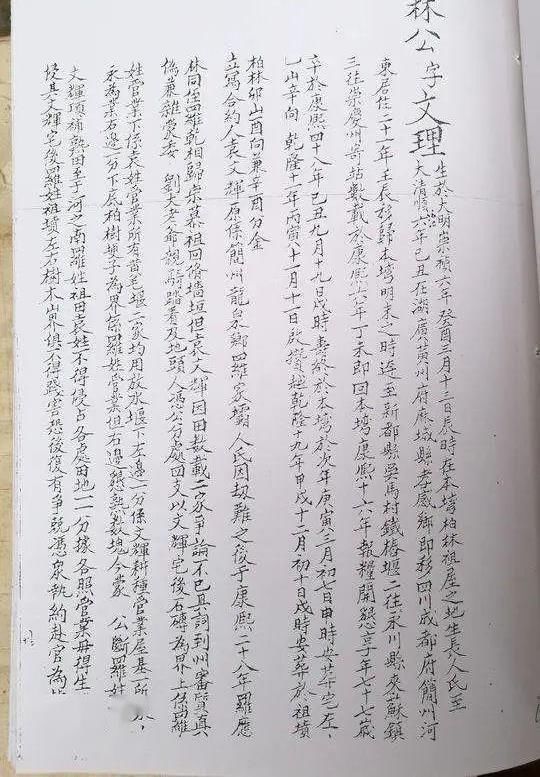 林公字文理
生於大明崇禎六年癸酉二月十三日辰時在本塆柏林祖屋之地生長人氏至
大清順六年己丑在湖廣黃州府麻城縣孝感鄉即移四川成都府簡州河
東居住二十一年壬辰移歸本塆明末之時迯至新都縣吳馬村鐵樁堰二往永川縣來蘇鎮
三往崇慶州寄站數載於康熙六年丁未即回本塆康熙十六年報糧開懇享年七十七歲
辛於康熙四十八年己丑九月十九日戌時壽終於本塆於次年庚寅三月初七日申時安葬宅左
乙山辛向乾隆十一年丙寅十一月十一日啟攢越乾隆十九年甲戌十二月初十日戌時安葬於祖墳
柏林卯山酉向兼辛酉分金
立寫合約人袁文輝原係簡州龍泉鄉羅家壩人氏因刼難之後于康熙二十八年羅應
林同侄羅乾相歸崇慕祖回修墻垣但袁文輝因田數載二家爭論不已具詞到州審質真
偽兼雜愛委 劉大老爺親騎踏看及地頭人憑公分處四支以文輝宅後石磚為界上係羅
姓管業下係袁姓管業所有苗毛堰二家均用放水堰下左邊一分係文輝耕種管業屋基一所
永為業右邊一分下底柏樹埂子為界係羅姓管業但右邊熟數塊今蒙 公斷羅姓
文輝項補熟田至于河之南羅姓祖田袁姓不得侵占各處田地一一分據各照管業毋得生
侵具文輝宅後羅姓祖墳左右樹木山界俱不得殘害恐後復有爭競憑眾執約赴官為